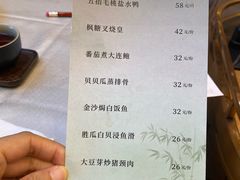 五指毛桃盐水鸭 58元/份
枫糖叉烧皇 42元/份
番茄煮大连鲍 32元/份
贝贝瓜蒸排骨 32元/份
金沙焗白饭鱼 32元/份
胜瓜白贝浸鱼滑 26元/份
大豆芽炒猪颈肉 26元/份